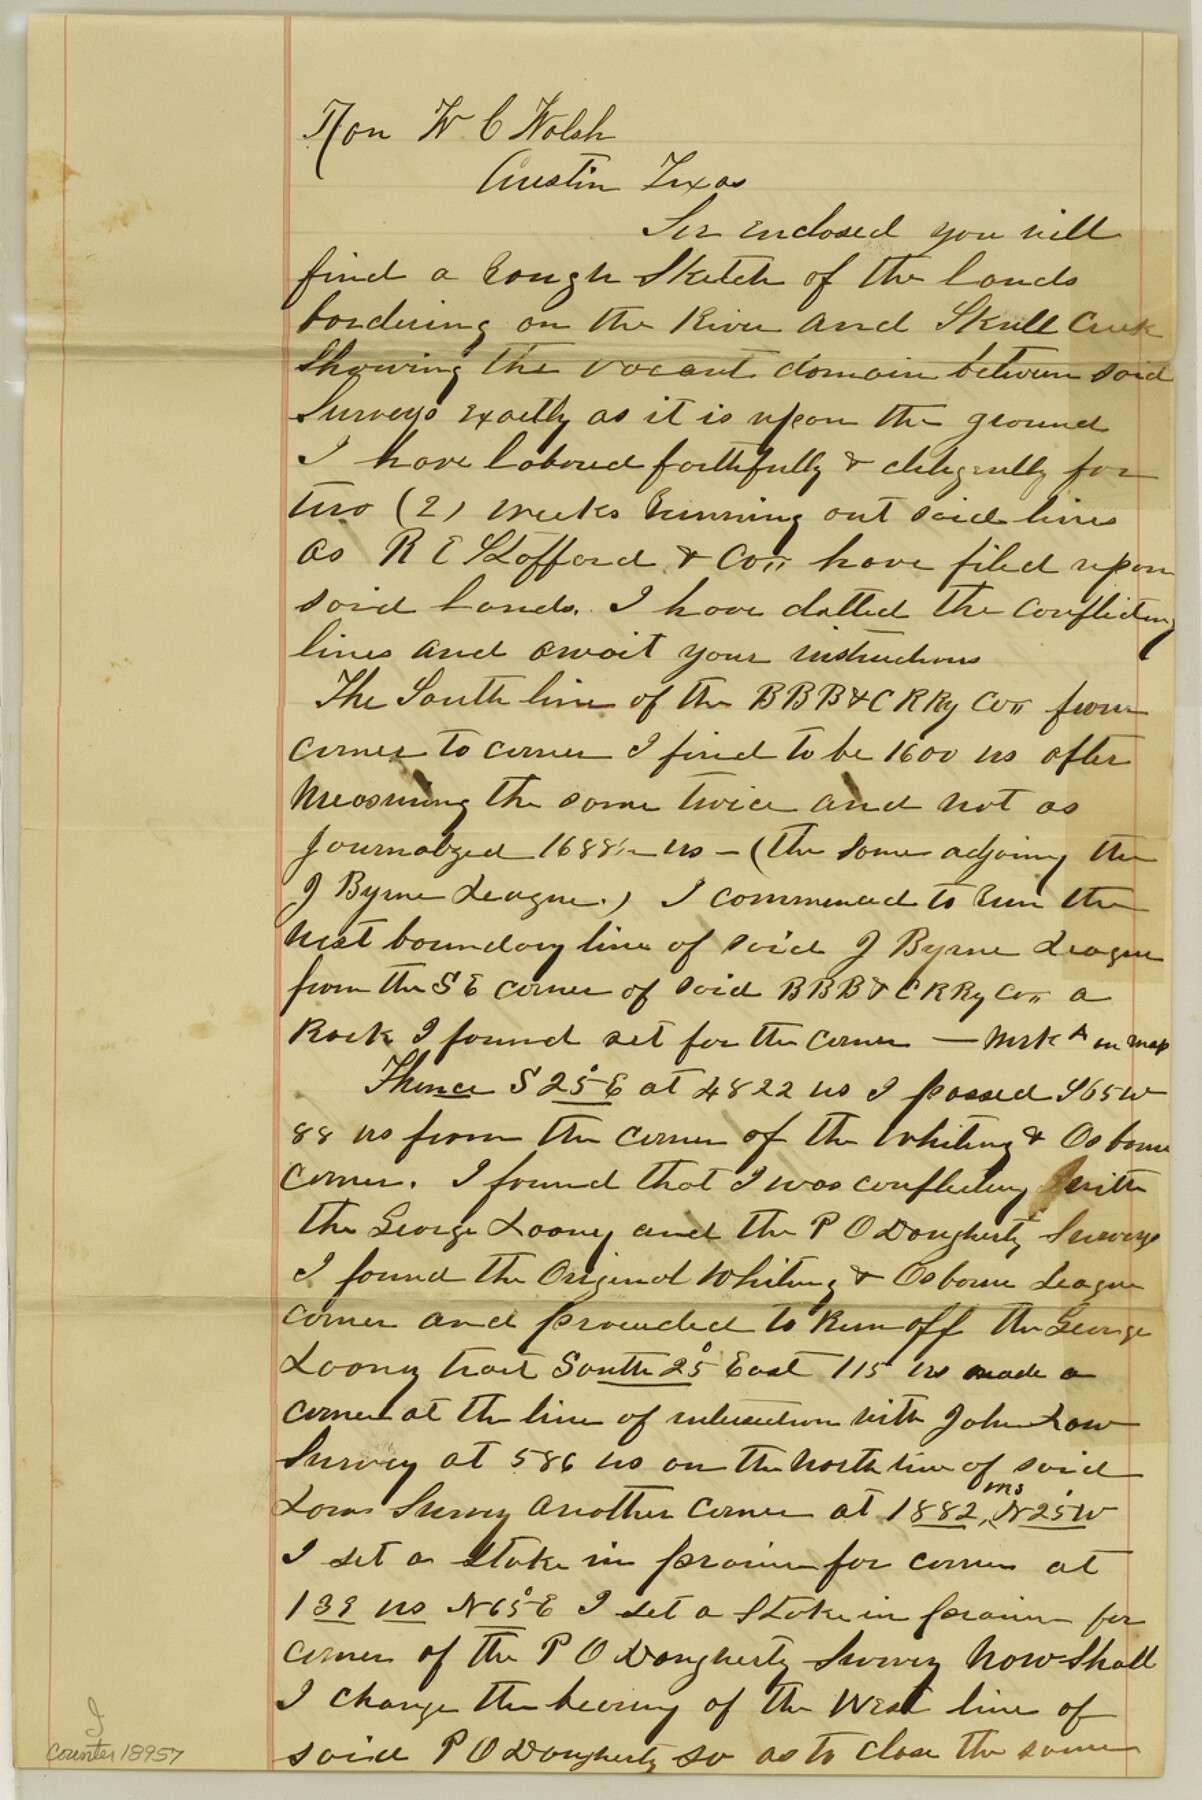 Hon W C Walsh
Austin Texas
Sir Enclosed you will
find a Rough Sketch of the lands
bordering on the River and Skull Creek
Showing the vacant domain between said
Surveys Exactly as it is upon the ground
I have labored faithfully & diligently for
two (2) weeks Running out said lines
as R E Stafford & Co" have filed upon
said lands. I have dotted the conflicting
lines and await your instructions
The South line of the BBB&CRRy Co" from
corner to corner I find to be 1600 vs after
Measuring the same twice and not as
Journalized 1688½ vs — (the same adjoining the
J Byrne League.) I commenced to Run the
West boundary line of said J Byrne League
from the S E corner of said BBB&CRRy Co" a
Rock I found set for the corner — Mark A on map
Thence S 25° E at 4822 vs I passed S65W
88 vs from the corner of the Whiting & Osborne
corner. I found that I was conflicting with
the George Looney and the P O Dougherty Surveys
I found the Original Whiting & Osborne League
corner and proceeded to Run off the George
Looney tract South 25° East 115 vs made a
corner at the line of intersection with John Low
Survey at 586 vs on the North line of said
Lows Survey another corner at 1882 vrs, N25°W
I set a stake in prairie for corner at
139 vs N65°E I set a stake in prairie for
corner of the P O Dougherty Survey Now Shall
I change the bearing of the West line of
said P O Dougherty so as to close the same
I
counter 18957